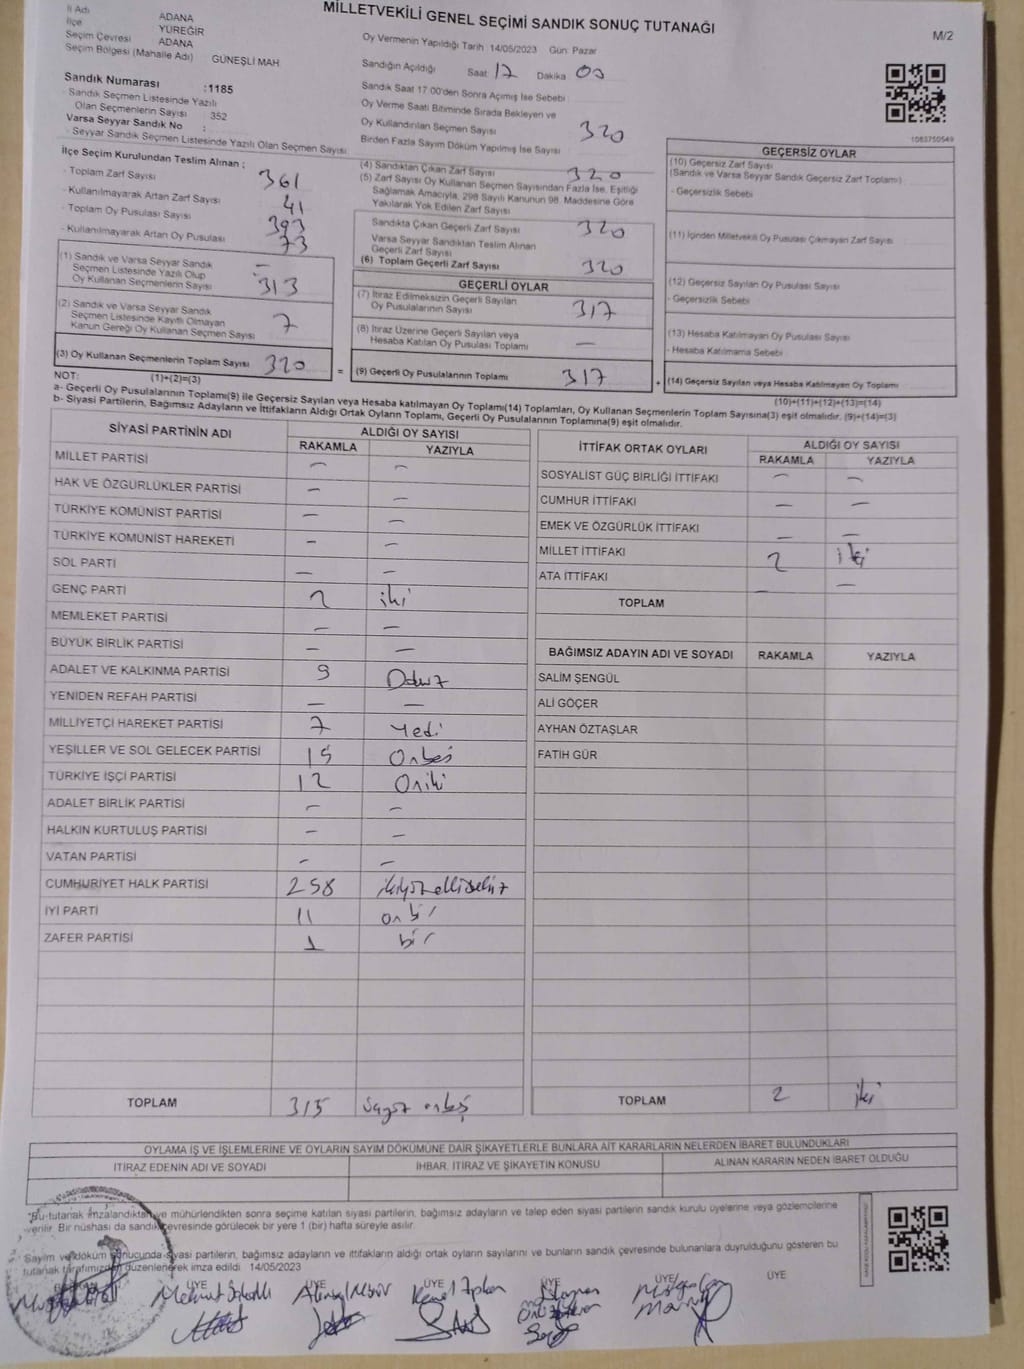 MİLLETVEKİLİ GENEL SEÇİMİ SANDIK SONUÇ TUTANAĞI
M/2
İl Adı ADANA
İlçe YÜREĞİR
Seçim Çevresi ADANA
Seçim Bölgesi (Mahalle Adı) GÜNEŞLİ MAH
Sandık Numarası :1185
- Sandık Seçmen Listesinde Yazılı
Olan Seçmenlerin Sayısı 352
Varsa Seyyar Sandık No :
- Seyyar Sandık Seçmen Listesinde Yazılı Olan Seçmen Sayısı
İlçe Seçim Kurulundan Teslim Alınan ;
- Toplam Zarf Sayısı 361
- Kullanılmayarak Artan Zarf Sayısı 41
- Toplam Oy Pusulası Sayısı 393
- Kullanılmayarak Artan Oy Pusulası 73
(1) Sandık ve Varsa Seyyar Sandık
Seçmen Listesinde Yazılı Olup
Oy Kullanan Seçmenlerin Sayısı 313
(2) Sandık ve Varsa Seyyar Sandık
Seçmen Listesinde Kayıtlı Olmayan
Kanun Gereği Oy Kullanan Seçmen Sayısı 7
(3) Oy Kullanan Seçmenlerin Toplam Sayısı 320 =
(1)+(2)=(3)
Oy Vermenin Yapıldığı Tarih 14/05/2023 Gün: Pazar
Sandığın Açıldığı Saat 17 Dakika 00
Sandık Saat 17:00'den Sonra Açımış İse Sebebi
Oy Verme Saati Bitiminde Sırada Bekleyen ve
Oy Kullandırılan Seçmen Sayısı 320
Birden Fazla Sayım Döküm Yapılmış İse Sayısı
(4) Sandıktan Çıkan Zarf Sayısı 320
(5) Zarf Sayısı Oy Kullanan Seçmen Sayısından Fazla İse, Eşitliği
Sağlamak Amacıyla, 298 Sayılı Kanunun 98. Maddesine Göre
Yakılarak Yok Edilen Zarf Sayısı
Sandıkta Çıkan Geçerli Zarf Sayısı 320
Varsa Seyyar Sandıktan Teslim Alınan
Geçerli Zarf Sayısı
(6) Toplam Geçerli Zarf Sayısı 320
GEÇERLİ OYLAR
(7) İtiraz Edilmeksizin Geçerli Sayılan
Oy Pusulalarının Sayısı 317
(8) İtiraz Üzerine Geçerli Sayılan veya
Hesaba Katılan Oy Pusulası Toplamı —
(9) Geçerli Oy Pusulalarının Toplamı 317 +
1083750549
GEÇERSİZ OYLAR
(10) Geçersiz Zarf Sayısı
(Sandık ve Varsa Seyyar Sandık Geçersiz Zarf Toplamı)
- Geçersizlik Sebebi
(11) İçinden Milletvekili Oy Pusulası Çıkmayan Zarf Sayısı
(12) Geçersiz Sayılan Oy Pusulası Sayısı
- Geçersizlik Sebebi
(13) Hesaba Katılmayan Oy Pusulası Sayısı
- Hesaba Katılmama Sebebi
(14) Geçersiz Sayılan veya Hesaba Katılmayan Oy Pusulası Toplamı
(10)+(11)+(12)+(13)=(14)
NOT:
a- Geçerli Oy Pusulalarının Toplamı(9) ile Geçersiz Sayılan veya Hesaba katılmayan Oy Toplamı(14) Toplamları, Oy Kullanan Seçmenlerin Toplam Sayısına(3) eşit olmalıdır. (9)+(14)=(3)
b- Siyasi Partilerin, Bağımsız Adayların ve İttifakların Aldığı Ortak Oyların Toplamı, Geçerli Oy Pusulalarının Toplamına(9) eşit olmalıdır.
SİYASİ PARTİNİN ADI ALDIĞI OY SAYISI
RAKAMLA YAZIYLA
MİLLET PARTİSİ — —
HAK VE ÖZGÜRLÜKLER PARTİSİ — —
TÜRKİYE KOMÜNİST PARTİSİ — —
TÜRKİYE KOMÜNİST HAREKETİ — —
SOL PARTİ — —
GENÇ PARTİ 2 iki
MEMLEKET PARTİSİ — —
BÜYÜK BİRLİK PARTİSİ — —
ADALET VE KALKINMA PARTİSİ 9
YENİDEN REFAH PARTİSİ — —
MİLLİYETÇİ HAREKET PARTİSİ 7 Yedi
YEŞİLLER VE SOL GELECEK PARTİSİ 15 Onbeş
TÜRKİYE İŞÇİ PARTİSİ 12 Oniki
ADALET BİRLİK PARTİSİ — —
HALKIN KURTULUŞ PARTİSİ — —
VATAN PARTİSİ — —
CUMHURİYET HALK PARTİSİ 258 ikiyüzellisekiz
İYİ PARTİ 11 onbir
ZAFER PARTİSİ 1 bir
TOPLAM 315 üçyüz onbeş
İTTİFAK ORTAK OYLARI ALDIĞI OY SAYISI
RAKAMLA YAZIYLA
SOSYALİST GÜÇ BİRLİĞİ İTTİFAKI — —
CUMHUR İTTİFAKI — —
EMEK VE ÖZGÜRLÜK İTTİFAKI — —
MİLLET İTTİFAKI 2 iki
ATA İTTİFAKI — —
TOPLAM
BAĞIMSIZ ADAYIN ADI VE SOYADI RAKAMLA YAZIYLA
SALİM ŞENGÜL
ALİ GÖÇER
AYHAN ÖZTAŞLAR
FATİH GÜR
TOPLAM 2 iki
OYLAMA İŞ VE İŞLEMLERİNE VE OYLARIN SAYIM DÖKÜMÜNE DAİR ŞİKAYETLERLE BUNLARA AİT KARARLARIN NELERDEN İBARET BULUNDUKLARI
İTİRAZ EDENİN ADI VE SOYADI İHBAR, İTİRAZ VE ŞİKAYETİN KONUSU ALINAN KARARIN NEDEN İBARET OLDUĞU
*Bu tutanak imzalandıktan ve mühürlendikten sonra seçime katılan siyasi partilerin, bağımsız adayların ve talep eden siyasi partilerin sandık kurulu üyelerine veya gözlemcilerine
verilir. Bir nüshası da sandık çevresinde görülecek bir yere 1 (bir) hafta süreyle asılır.
Sayım ve döküm sonucunda siyasi partilerin, bağımsız adayların ve ittifakların aldığı ortak oyların sayılarını ve bunların sandık çevresinde bulunanlara duyrulduğunu gösteren bu
tutanak tarafımızdan düzenlenerek imza edildi 14/05/2023
ÜYE ÜYE ÜYE ÜYE ÜYE ÜYE